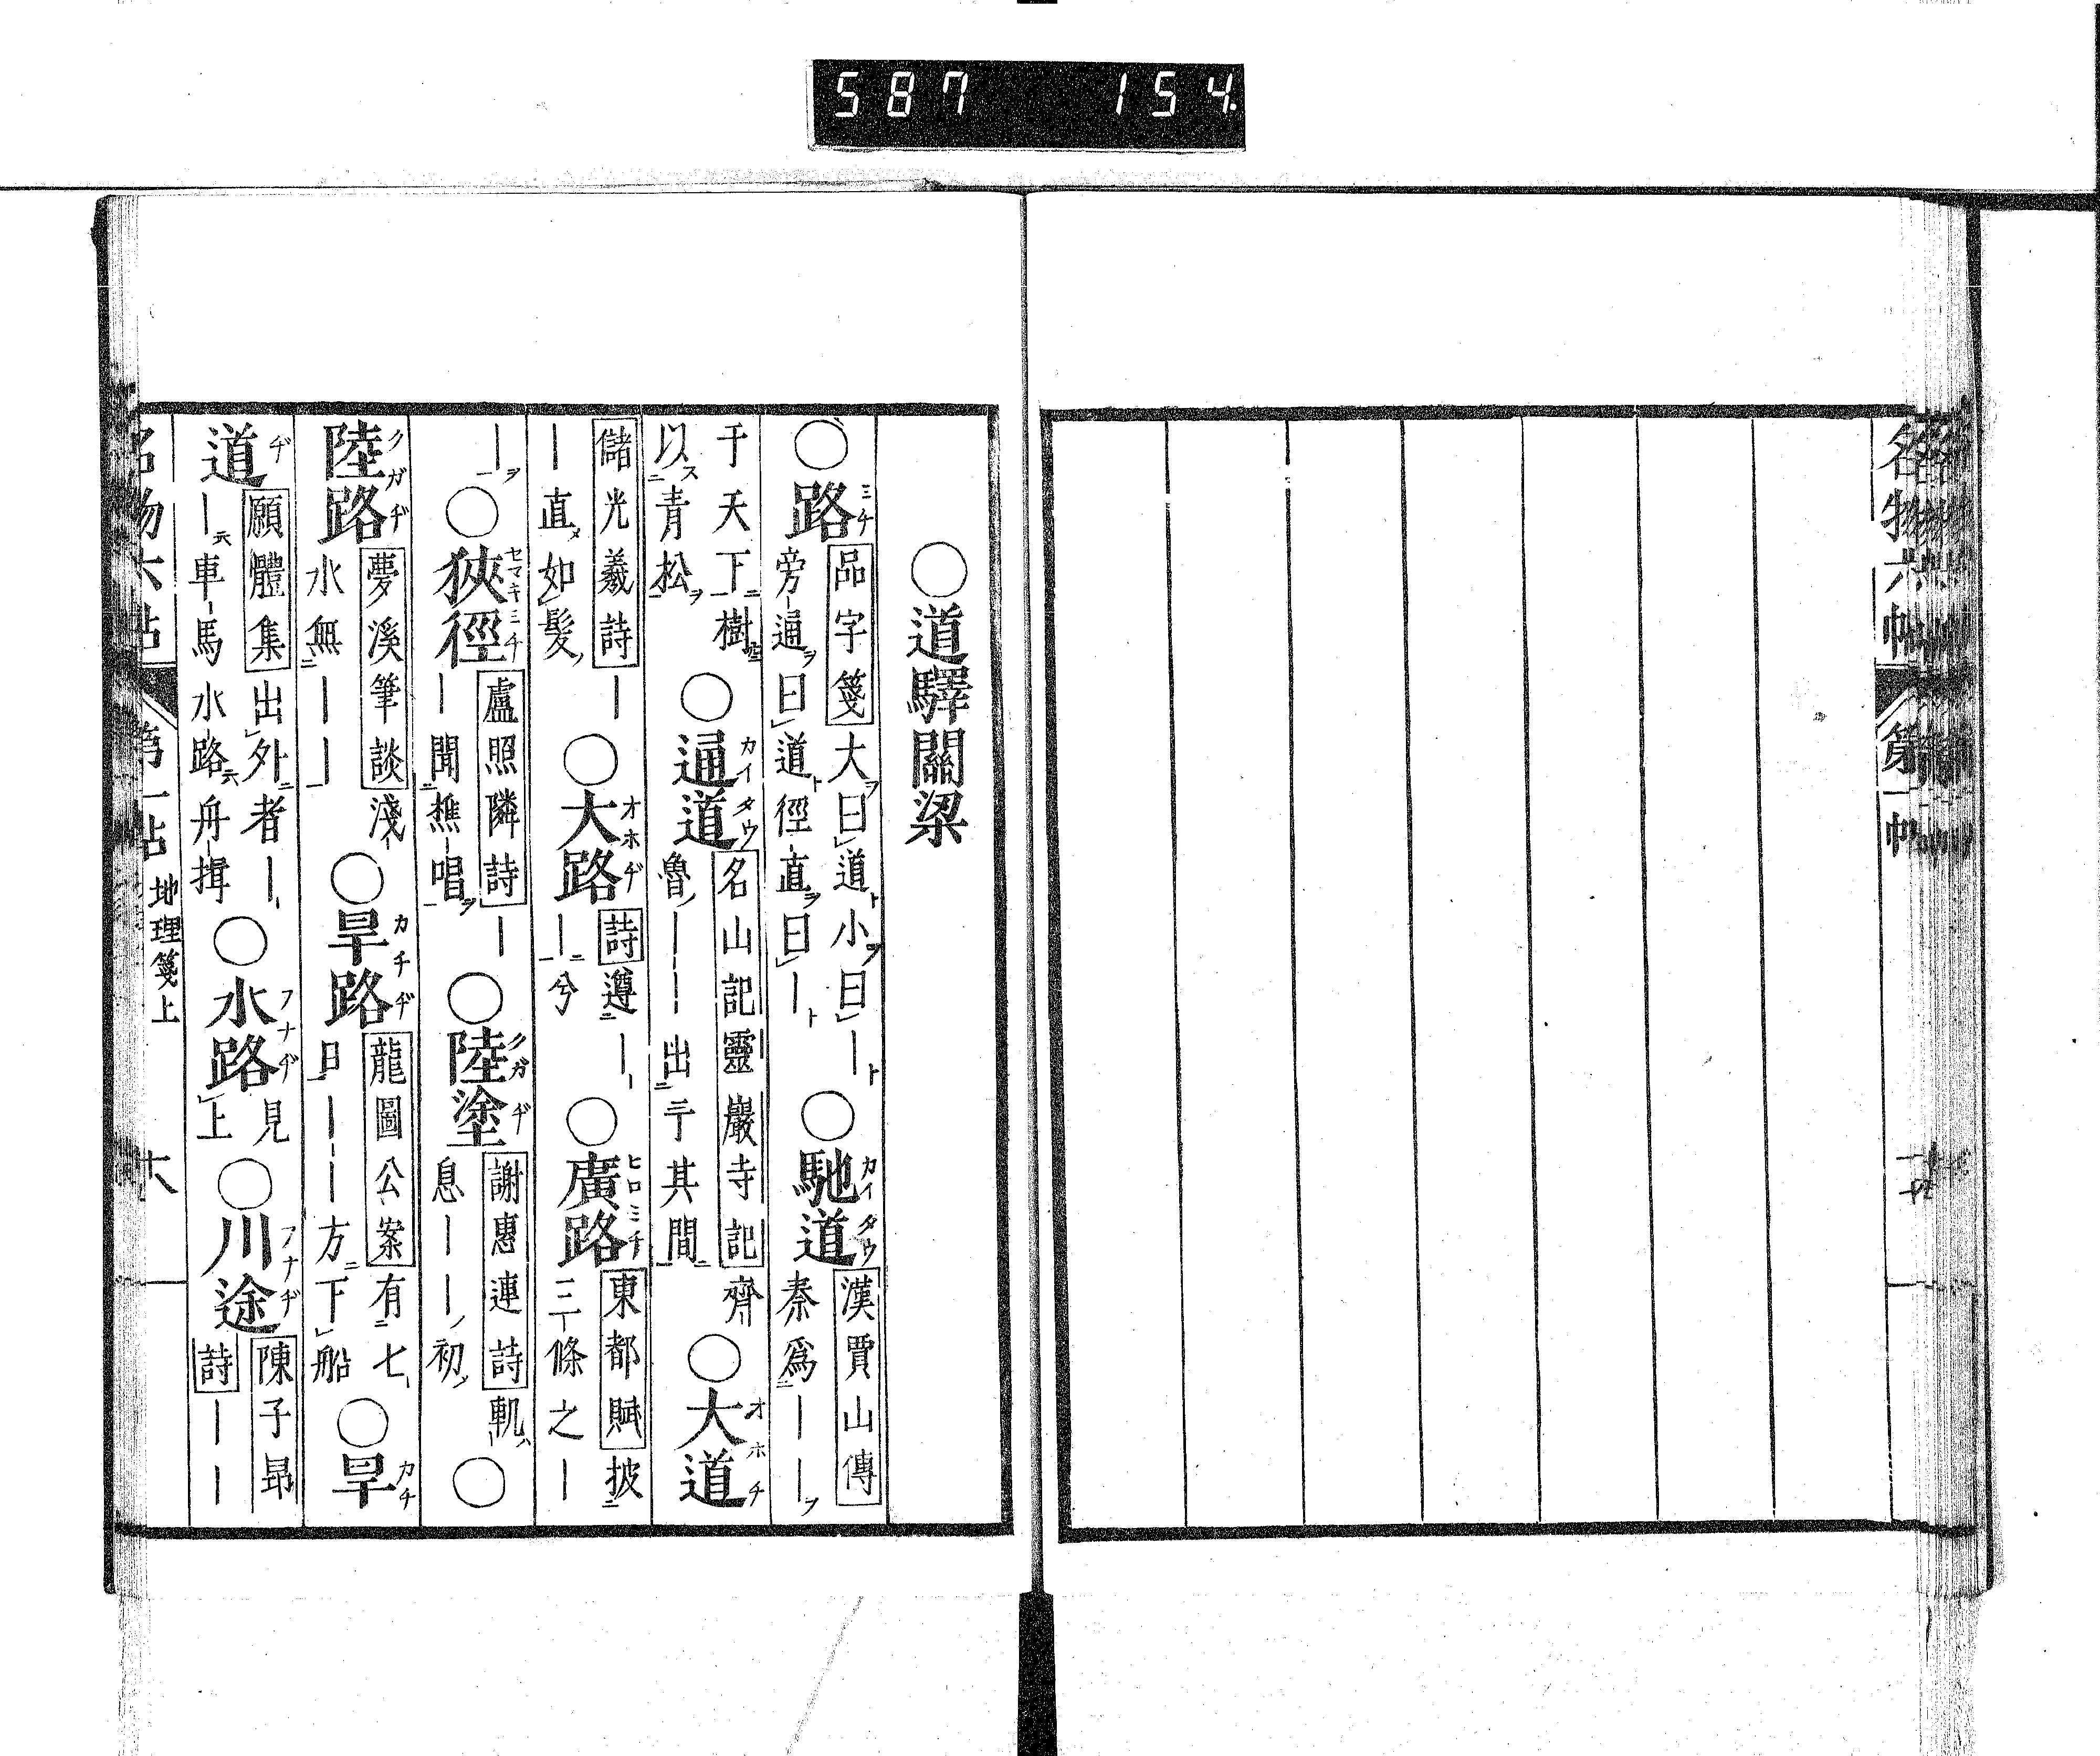 587 154
名物六帖 第一帖
○道驛關梁
○路ミチ 品字箋 大ヲ曰道ト小ヲ曰｜ト 旁通ヲ曰道ト徑直ヲ曰｜ト ○馳道カイタウ 漢賈山傳 秦爲｜｜ヲ
于天下ニ樹 以ス青松ヲ ○通道カイタウ 名山記靈巖寺記 齊魯ノ｜｜出于其間ニ ○大道オホチ
儲光羲詩 ｜｜直如髮ノ ○大路オホヂ 詩 遵｜｜兮 ○廣路ヒロミチ 東都賦 披三條之｜
｜ヲ ○狹徑セマキミチ 盧照隣詩 ｜｜聞樵唱ヲ ○陸塗クガヂ 謝惠連詩 軌息｜｜ノ初 ○
陸路クガヂ 夢溪筆談 淺水無｜｜ ○旱路カチヂ 龍圖公案 有七日｜｜方下船 ○旱カチ
道ヂ 願體集 出外者｜｜車馬水路舟揖 ○水路フナヂ 見上 ○川途フナヂ 陳子昂詩 ｜｜
名物六帖 第一帖 地理箋上 六